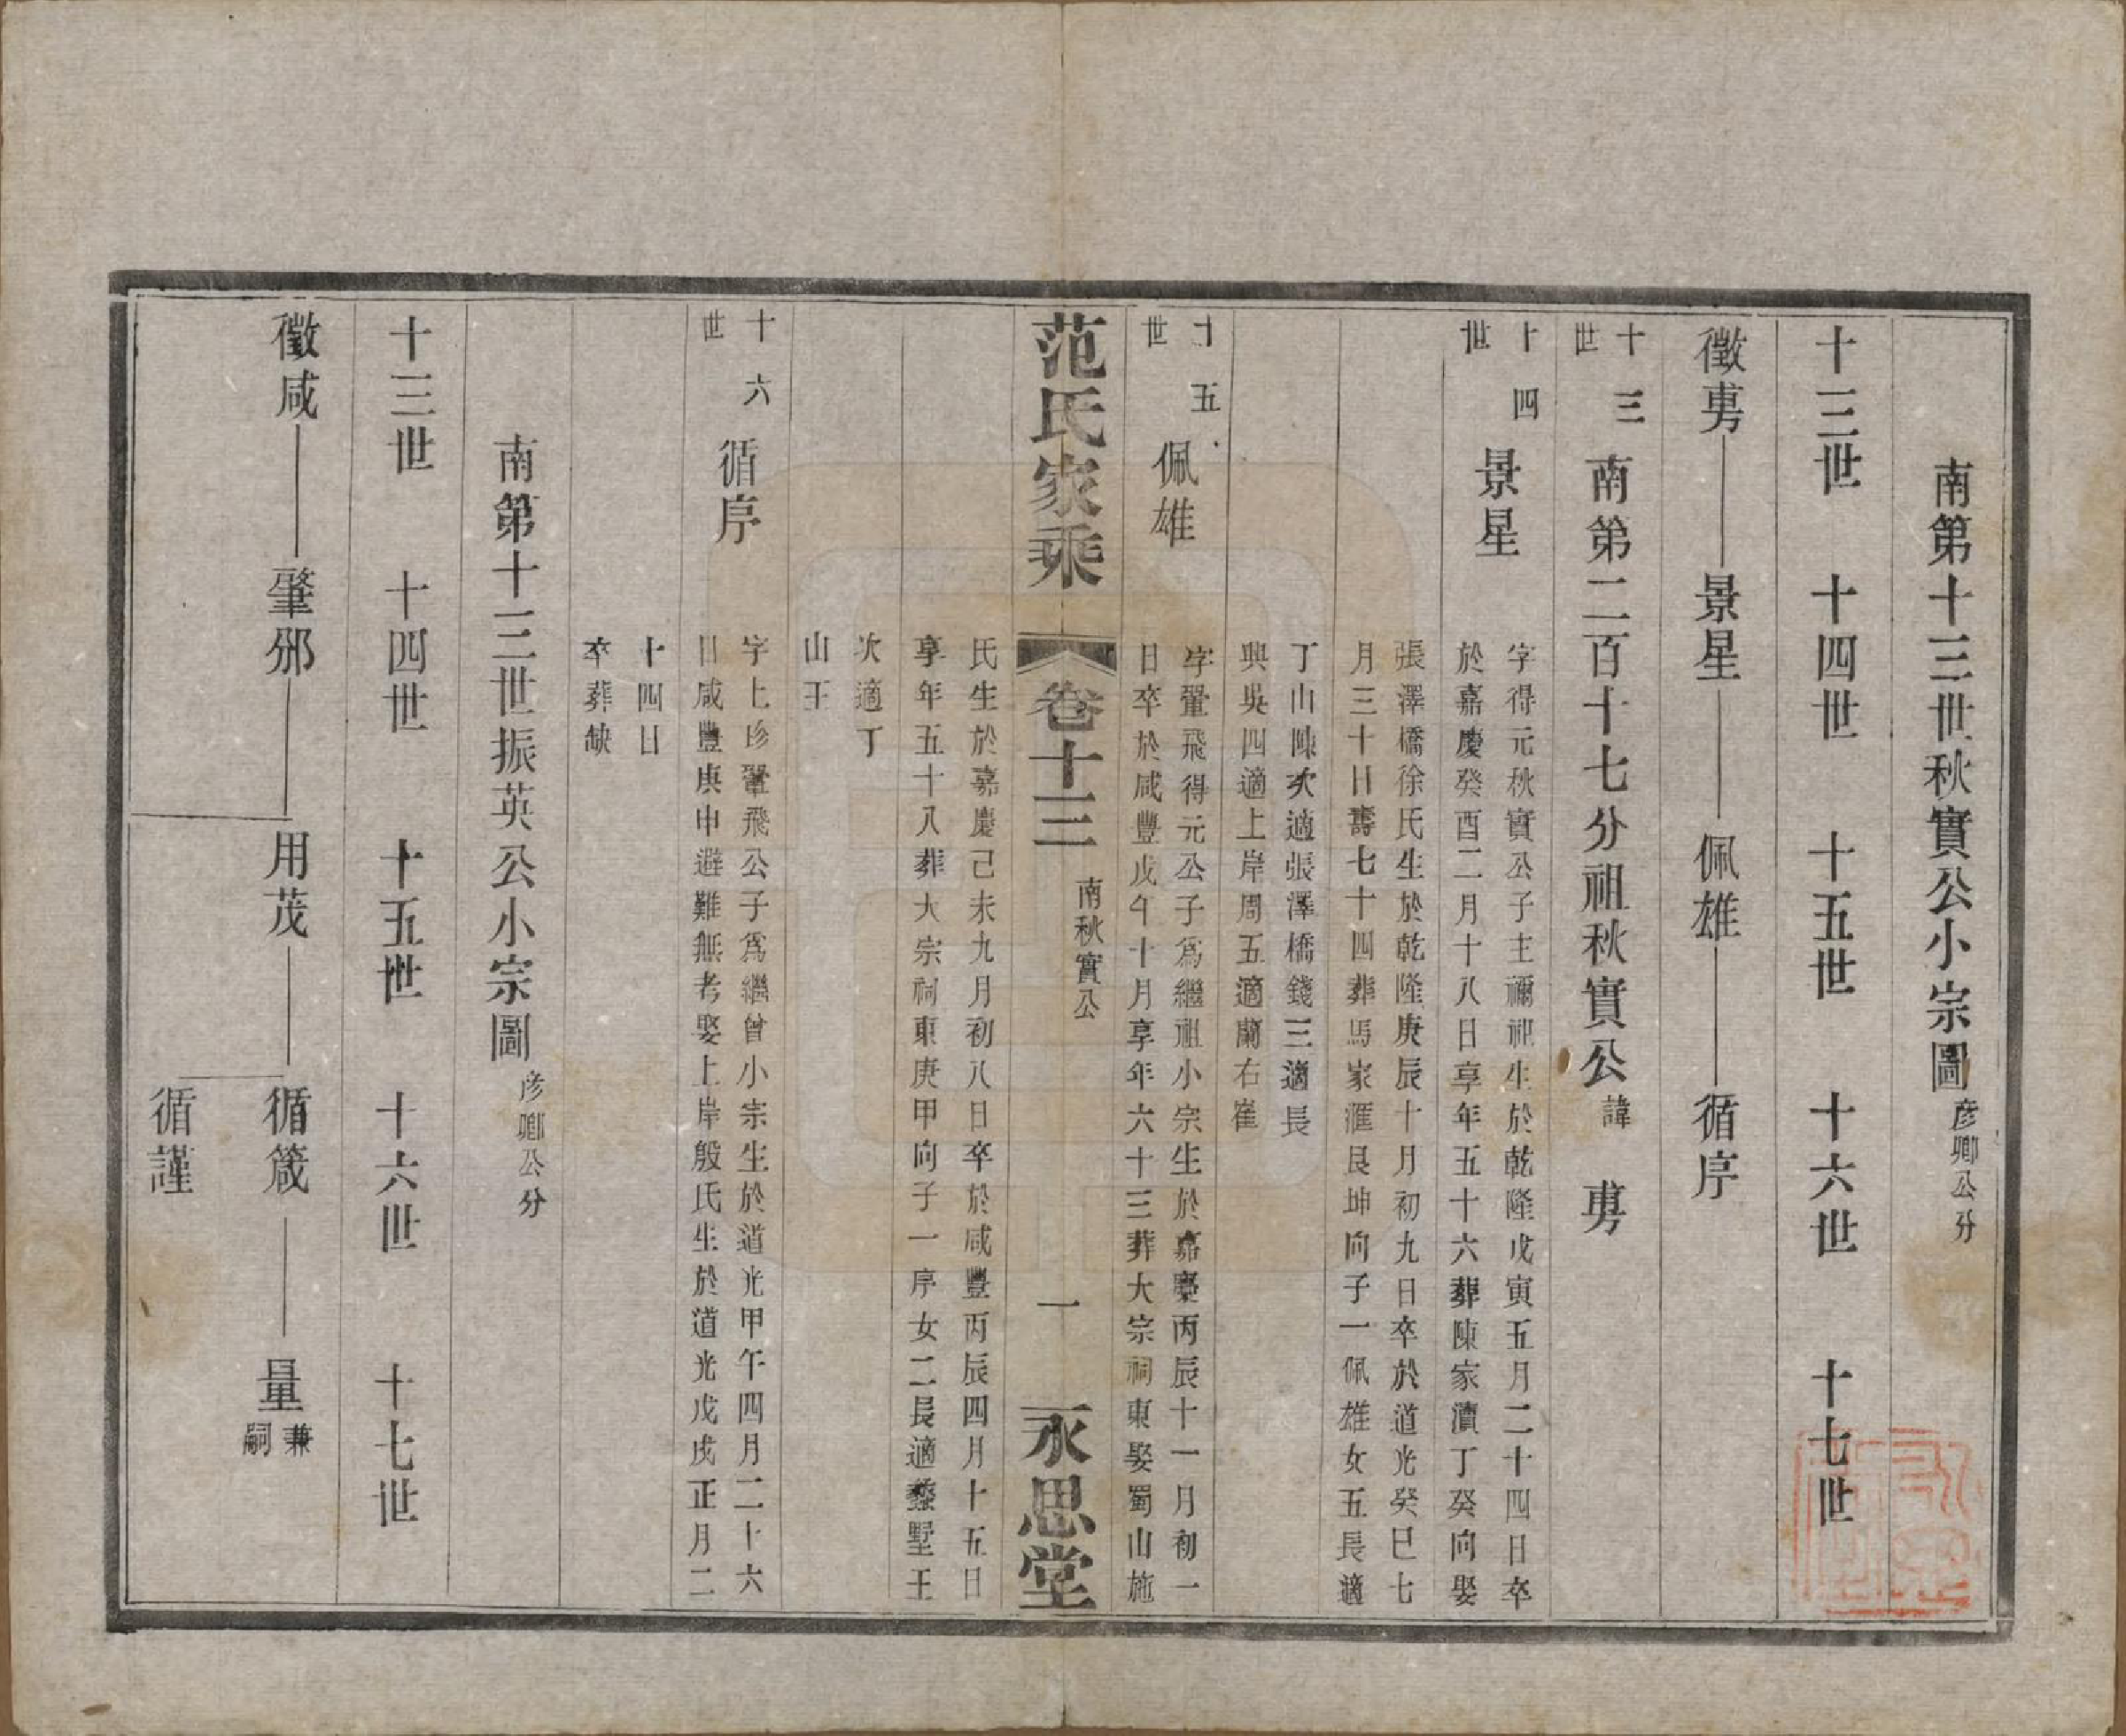 南第十三世秋實公小宗圖彦卿公分
十三世 十四世 十五世 十六世 十七世
徵旉 景星 佩雄 循序
十三世 南第二百十七分祖秋實公諱 旉
十四世 景星
字得元秋實公子主禰祀生於乾隆戊寅五月二十四日卒
於嘉慶癸酉二月十八日享年五十六葬陳家瀆丁癸向娶
張澤橋徐氏生於乾隆庚辰十月初九日卒於道光癸巳七
月三十日壽七十四葬馬家滙艮坤向子一佩雄女五長適
丁山陳次適張澤橋錢三適長
興吳四適上岸周五適蘭右崔
十五世 佩雄
字翬飛得元公子爲繼祖小宗生於嘉慶丙辰十一月初一
日卒於咸豐戊午十月享年六十三葬大宗祠東娶蜀山施
范氏家乘 卷十三 南秋實公 一 永思堂
氏生於嘉慶己未九月初八日卒於咸豐丙辰四月十五日
享年五十八葬大宗祠東庚甲向子一序女二長適蠡墅王
次適丁
山王
十六世 循序
字上珍翬飛公子爲繼曾小宗生於道光甲午四月二十六
日咸豐庚申避難無考娶上岸殷氏生於道光戊戌正月二
十四日
卒葬缺
南第十三世振英公小宗圖彦卿公分
十三世 十四世 十五世 十六世 十七世
徵咸 肇邠 用茂 循箴 量兼嗣
循謹